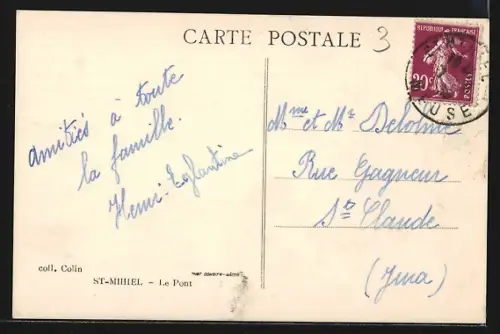 CARTE POSTALE
3
REPUBLIQUE FRANÇAISE
20c
POSTES
MEUSE
amitiés à toute
la famille.
Henri-Eglantine
Mme et Mr Delorme
Rue Gagneur
St Claude
(Jura)
coll. Colin
ST-MIHIEL – Le Pont